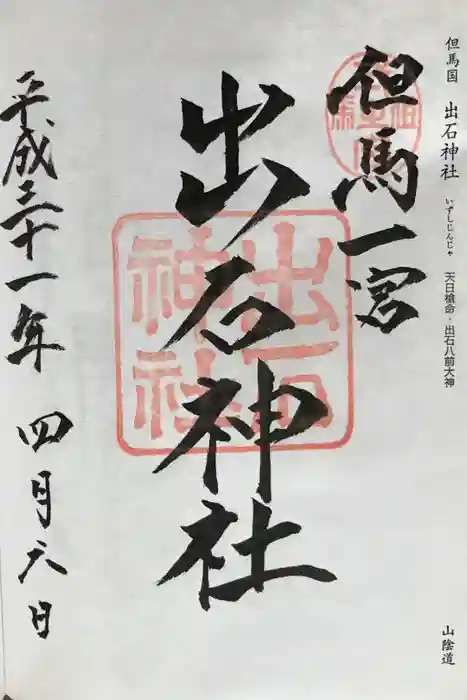 但馬国 出石神社 いずしじんじゃ 天日槍命・出石八前大神
山陰道
但馬一宮
出石神社
出石
神社
平成三十一年 四月六日